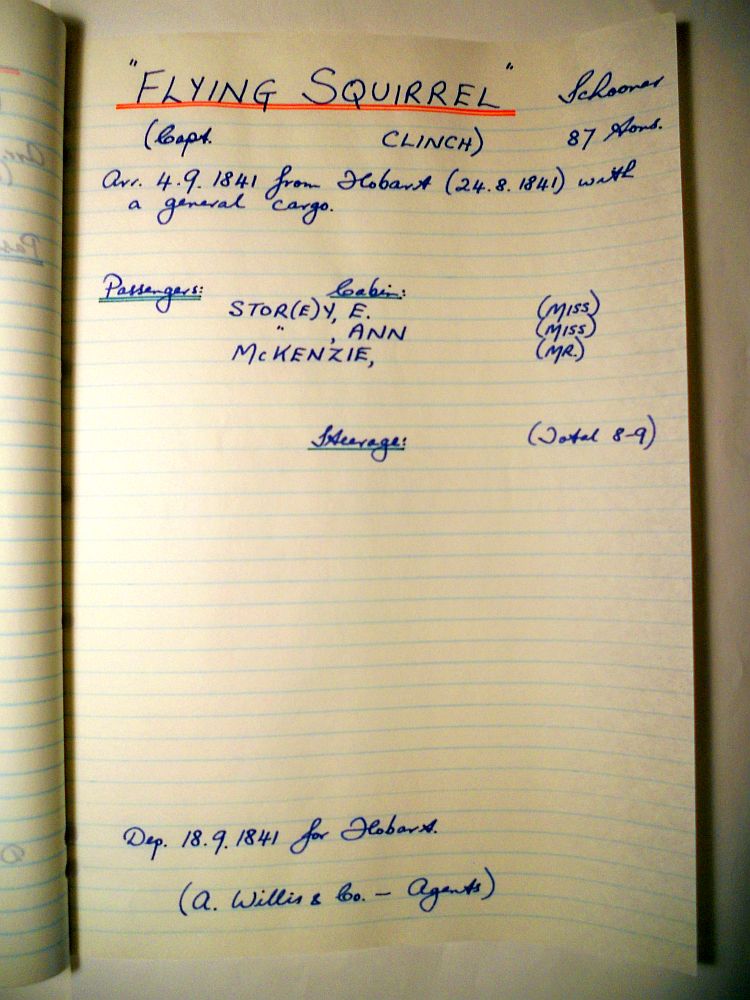 "FLYING SQUIRREL" Schooner
(Capt. CLINCH) 87 tons.
Arr. 4.9.1841 from Hobart (24.8.1841) with
a general cargo.
Passengers: Cabin:
STOR(E)Y, E. (MISS)
" , ANN (MISS)
McKENZIE, (MR.)
Steerage: (Total 8-9)
Dep. 18.9.1841 for Hobart.
(A. Willis & Co. - Agents)